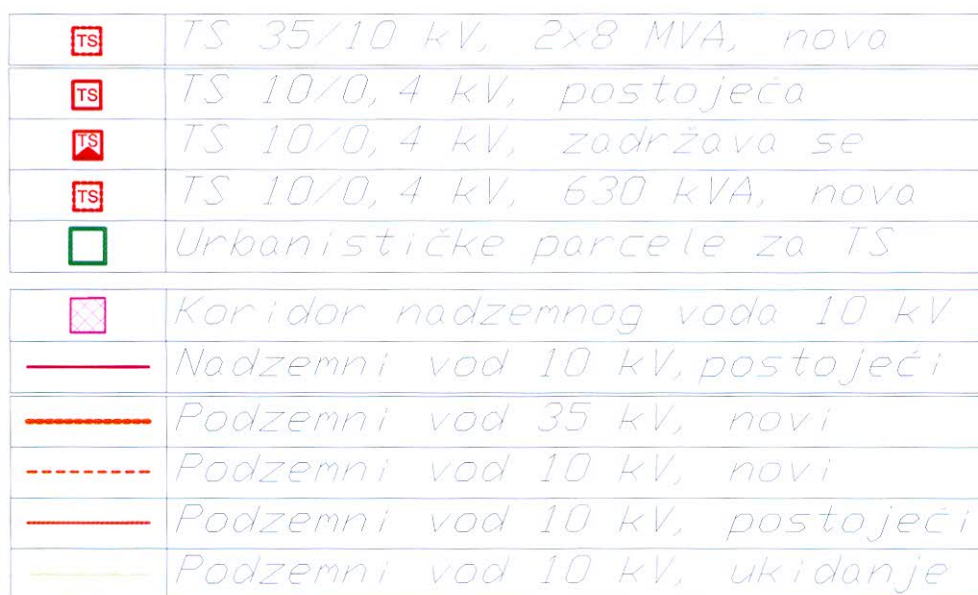 TS TS 35/10 kV, 2x8 MVA, nova
TS TS 10/0,4 kV, postojeća
TS TS 10/0,4 kV, zadržava se
TS TS 10/0,4 kV, 630 kVA, nova
Urbanističke parcele za TS
Koridor nadzemnog voda 10 kV
Nadzemni vod 10 kV, postojeći
Podzemni vod 35 kV, novi
Podzemni vod 10 kV, novi
Podzemni vod 10 kV, postojeći
Podzemni vod 10 kV, ukidanje